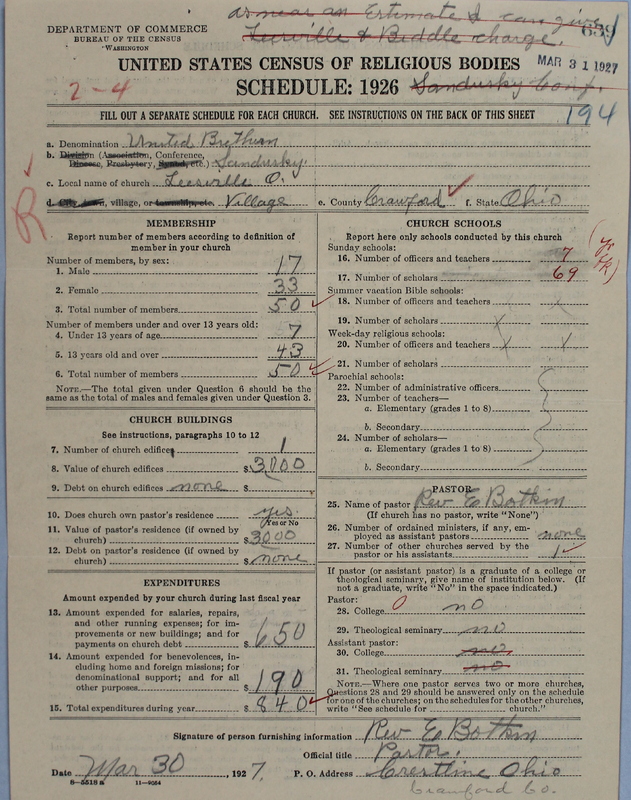 as near an Estimate I can give
659
DEPARTMENT OF COMMERCE
BUREAU OF THE CENSUS
WASHINGTON
Leesville & Biddle charge.
MAR 31 1927
UNITED STATES CENSUS OF RELIGIOUS BODIES
2-4
SCHEDULE: 1926
Sandusky Conf.
FILL OUT A SEPARATE SCHEDULE FOR EACH CHURCH. SEE INSTRUCTIONS ON THE BACK OF THIS SHEET
194
a. Denomination United Brethern
b. Division (Association, Conference,
Diocese, Presbytery, Synod, etc.) Sandusky.
c. Local name of church Leesville O.
d. City, town, village, or township, etc. Village e. County Crawford f. State Ohio
R
MEMBERSHIP
Report number of members according to definition of
member in your church
Number of members, by sex:
1. Male 17
2. Female 33
3. Total number of members 50
Number of members under and over 13 years old:
4. Under 13 years of age 7
5. 13 years old and over 43
6. Total number of members 50
NOTE.—The total given under Question 6 should be the
same as the total of males and females given under Question 3.
CHURCH BUILDINGS
See instructions, paragraphs 10 to 12
7. Number of church edifices 1
8. Value of church edifices $ 3,000
9. Debt on church edifices none $
10. Does church own pastor's residence yes
Yes or No
11. Value of pastor's residence (if owned by
church) $ 3000
12. Debt on pastor's residence (if owned by
church) $ none
EXPENDITURES
Amount expended by your church during last fiscal year
13. Amount expended for salaries, repairs,
and other running expenses; for im-
provements or new buildings; and for
payments on church debt $ 650
14. Amount expended for benevolences, in-
cluding home and foreign missions; for
denominational support; and for all
other purposes $ 190
15. Total expenditures during year $ 840
CHURCH SCHOOLS
Report here only schools conducted by this church
Sunday schools:
16. Number of officers and teachers 7
17. Number of scholars 69
Summer vacation Bible schools:
18. Number of officers and teachers
19. Number of scholars x
Week-day religious schools:
20. Number of officers and teachers x x
21. Number of scholars
Parochial schools:
22. Number of administrative officers
23. Number of teachers—
a. Elementary (grades 1 to 8)
b. Secondary
24. Number of scholars—
a. Elementary (grades 1 to 8)
b. Secondary
PASTOR
25. Name of pastor Rev E Botkin
(If church has no pastor, write "None")
26. Number of ordained ministers, if any, em-
ployed as assistant pastors none
27. Number of other churches served by the
pastor or his assistants 1
If pastor (or assistant pastor) is a graduate of a college or
theological seminary, give name of institution below. (If
not a graduate, write "No" in the space indicated.)
Pastor:
28. College 0 no
29. Theological seminary no
Assistant pastor:
30. College no
31. Theological seminary no
NOTE.—Where one pastor serves two or more churches,
Questions 28 and 29 should be answered only on the schedule
for one of the churches; on the schedules for the other churches,
write "See schedule for church."
Signature of person furnishing information Rev E Botkin
Official title Pastor.
Date Mar 30, 1927. P. O. Address Crestline Ohio
8—5518a 11—9054
Crawford Co.